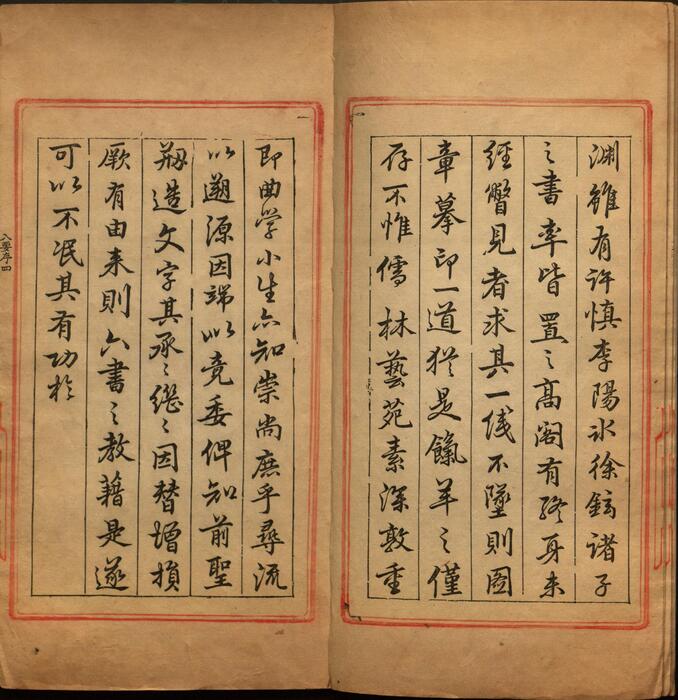 渊雖有許慎李陽冰徐鉉諸子
之書率皆置之高閣有終身未
經瞥見者求其一线不墜則圖
章摹印一道犹是餼羊之僅
存不惟儒林藝苑素深敦重
即曲学小生亦知崇尚庶乎尋流
以遡源因端以竟委俾知前聖
剏造文字其承〻繼〻因替增損
厥有由来則六書之教藉是遂
可以不泯其有功於
要序四